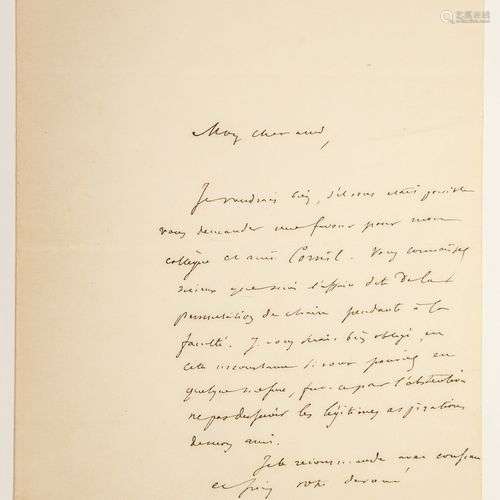 北京荣宝
Mon cher ami,
Je voudrais bien, s'il vous était possible
vous demander une faveur pour mon
collègue et ami Cornil. Vous connaissez
mieux que moi l'affaire dite de la
permutation de chaire pendante à la
faculté. Je vous serais bien obligé, en
cette circonstance si vous pouviez en
quelque, fut-ce par l'abstention
ne pas desservir les légitimes aspirations
de mon ami.
Je le recommande avec confiance
et suis votre dévoué